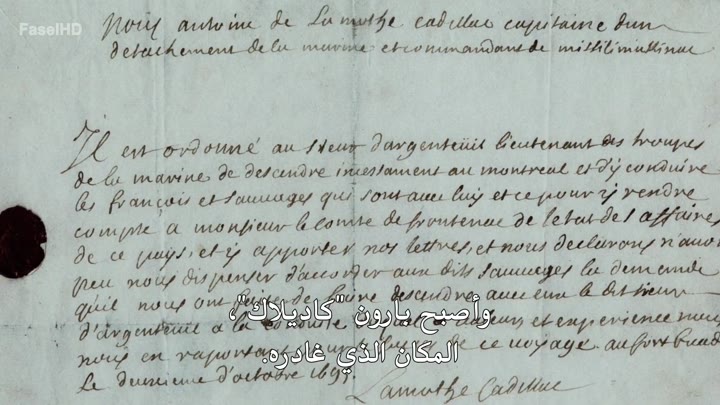 FaselHD
Nous antoine de Lamothe Cadillac capitaine dun
detachement de la marine et commandant de missilimakinac
Il est ordonné au sieur d'argenteüil lieutenant des troupes
de la marine de descendre incessament au montreal et d'y conduire
les françois et sauvages qui sont avec luy et ce pour y rendre
compte a monsieur le comte de frontenac de l'etat des affaires
de ce pays, et y apporter nos lettres, et nous declarons n'avoir
peu nous dispenser d'accorder aux dits sauvages la demande
qu'il nous ont faite de faire descendre avec eux le dit sieur
d'argenteuil a la conduite et experience nous
nous en raportant de ce voyage. au fort
Le deuxieme d'octobre 1695
Lamothe Cadillac
وأصبح بارون "كاديلاك"،
المكان الذي غادره.